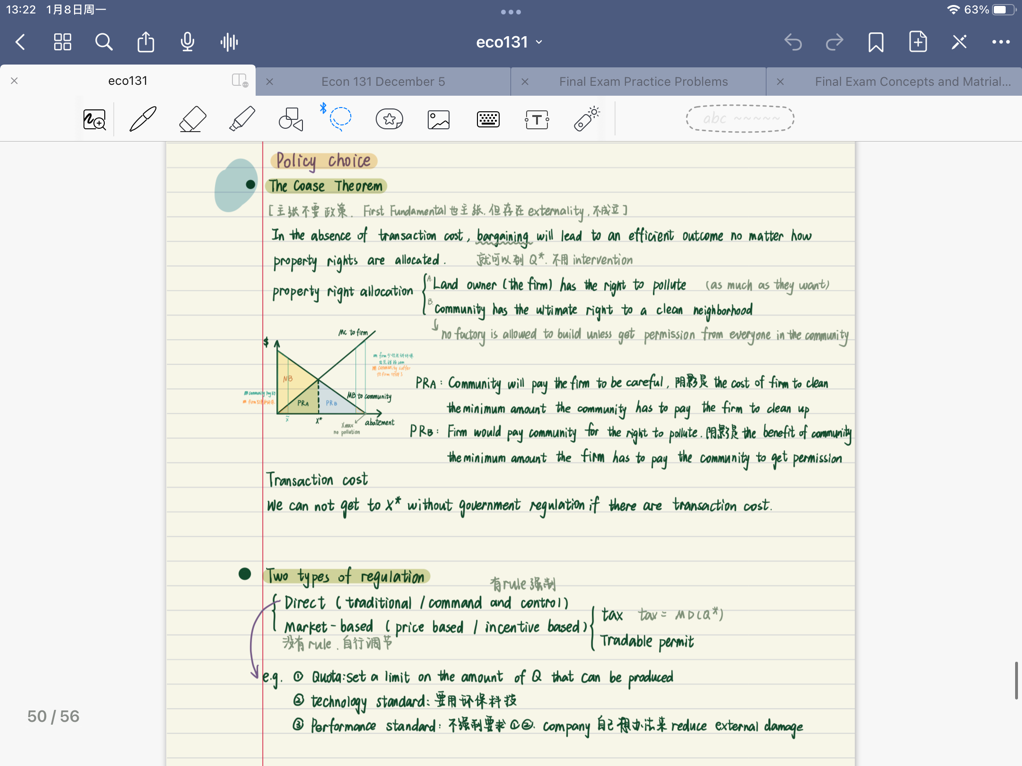 13:22 1月8日周一
63%
eco131
eco131
Econ 131 December 5
Final Exam Practice Problems
Final Exam Concepts and Matrial...
abc
Policy choice
The Coase Theorem
[主张不要政策. First Fundamental也主张.但存在externality.不成立]
In the absence of transaction cost, bargaining will lead to an efficient outcome no matter how
property rights are allocated. 就可以到 Q*. 不用 intervention
property right allocation
A Land owner (the firm) has the right to pollute (as much as they want)
B Community has the ultimate right to a clean neighborhood
no factory is allowed to build unless get permission from everyone in the community
$
MC to firm
MB
MB to community
PRA
PRB
X*
abatement
Xmax
no pollution
PRA: Community will pay the firm to be careful, 阴影是 the cost of firm to clean
the minimum amount the community has to pay the firm to clean up
PRB: Firm would pay community for the right to pollute. 阴影是 the benefit of community
the minimum amount the firm has to pay the community to get permission
Transaction cost
We can not get to X* without government regulation if there are transaction cost.
Two types of regulation
有rule 强制
Direct (traditional / command and control)
Market-based (price based / incentive based)
没有rule.自行调节
tax tax = MD(Q*)
Tradable permit
e.g. ① Quota: set a limit on the amount of Q that can be produced
② technology standard: 要用环保科技
③ Performance standard: 不强制要求①②. company 自己想办法来 reduce external damage
50 / 56